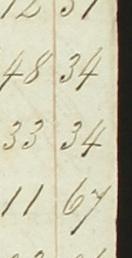 12 31
48 34
33 34
11 67